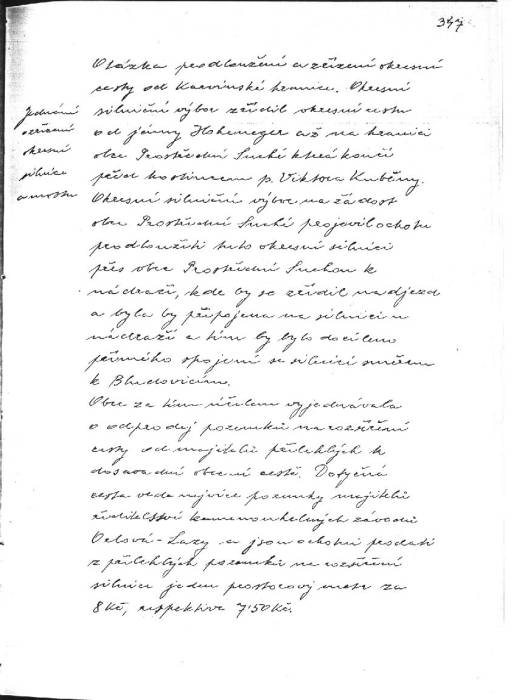 347
Otázka prodloužení a zřízení okresní
cesty od Karvinské hranice. Okresní
silniční výbor zřídil okresní cestu
od jámy Hoheneger až na hranici
obce Prostřední Suché která končí
před hostincem p. Viktora Kubčiny.
Okresní silniční výbor na žádost
obce Prostřední Suché projevil ochotu
prodloužiti tuto okresní silnici
přes obec Prostřední Suchou k
nádraží, kde by se zřídil nadjezd
a byla by připojena na silnici u
nádraží a tím by bylo docíleno
přímého spojení se silnicí směrem
k Bludovicím.
Obec za tím účelem vyjednávala
o odprodej pozemků na rozšíření
cesty od majitelů přilehlých k
dosavadní obecní cestě. Dotyčná
cesta vede nejvíce pozemky majitelů
ředitelství kamenouhelných závodů
Orlová-Lazy a jsou ochotni prodati
z přilehlých pozemků na rozšíření
silnice jeden prostorový metr za
8 Kč, respektive 7·50 Kč.
Jednání
o zřízení
okresní
silnice
a mostu